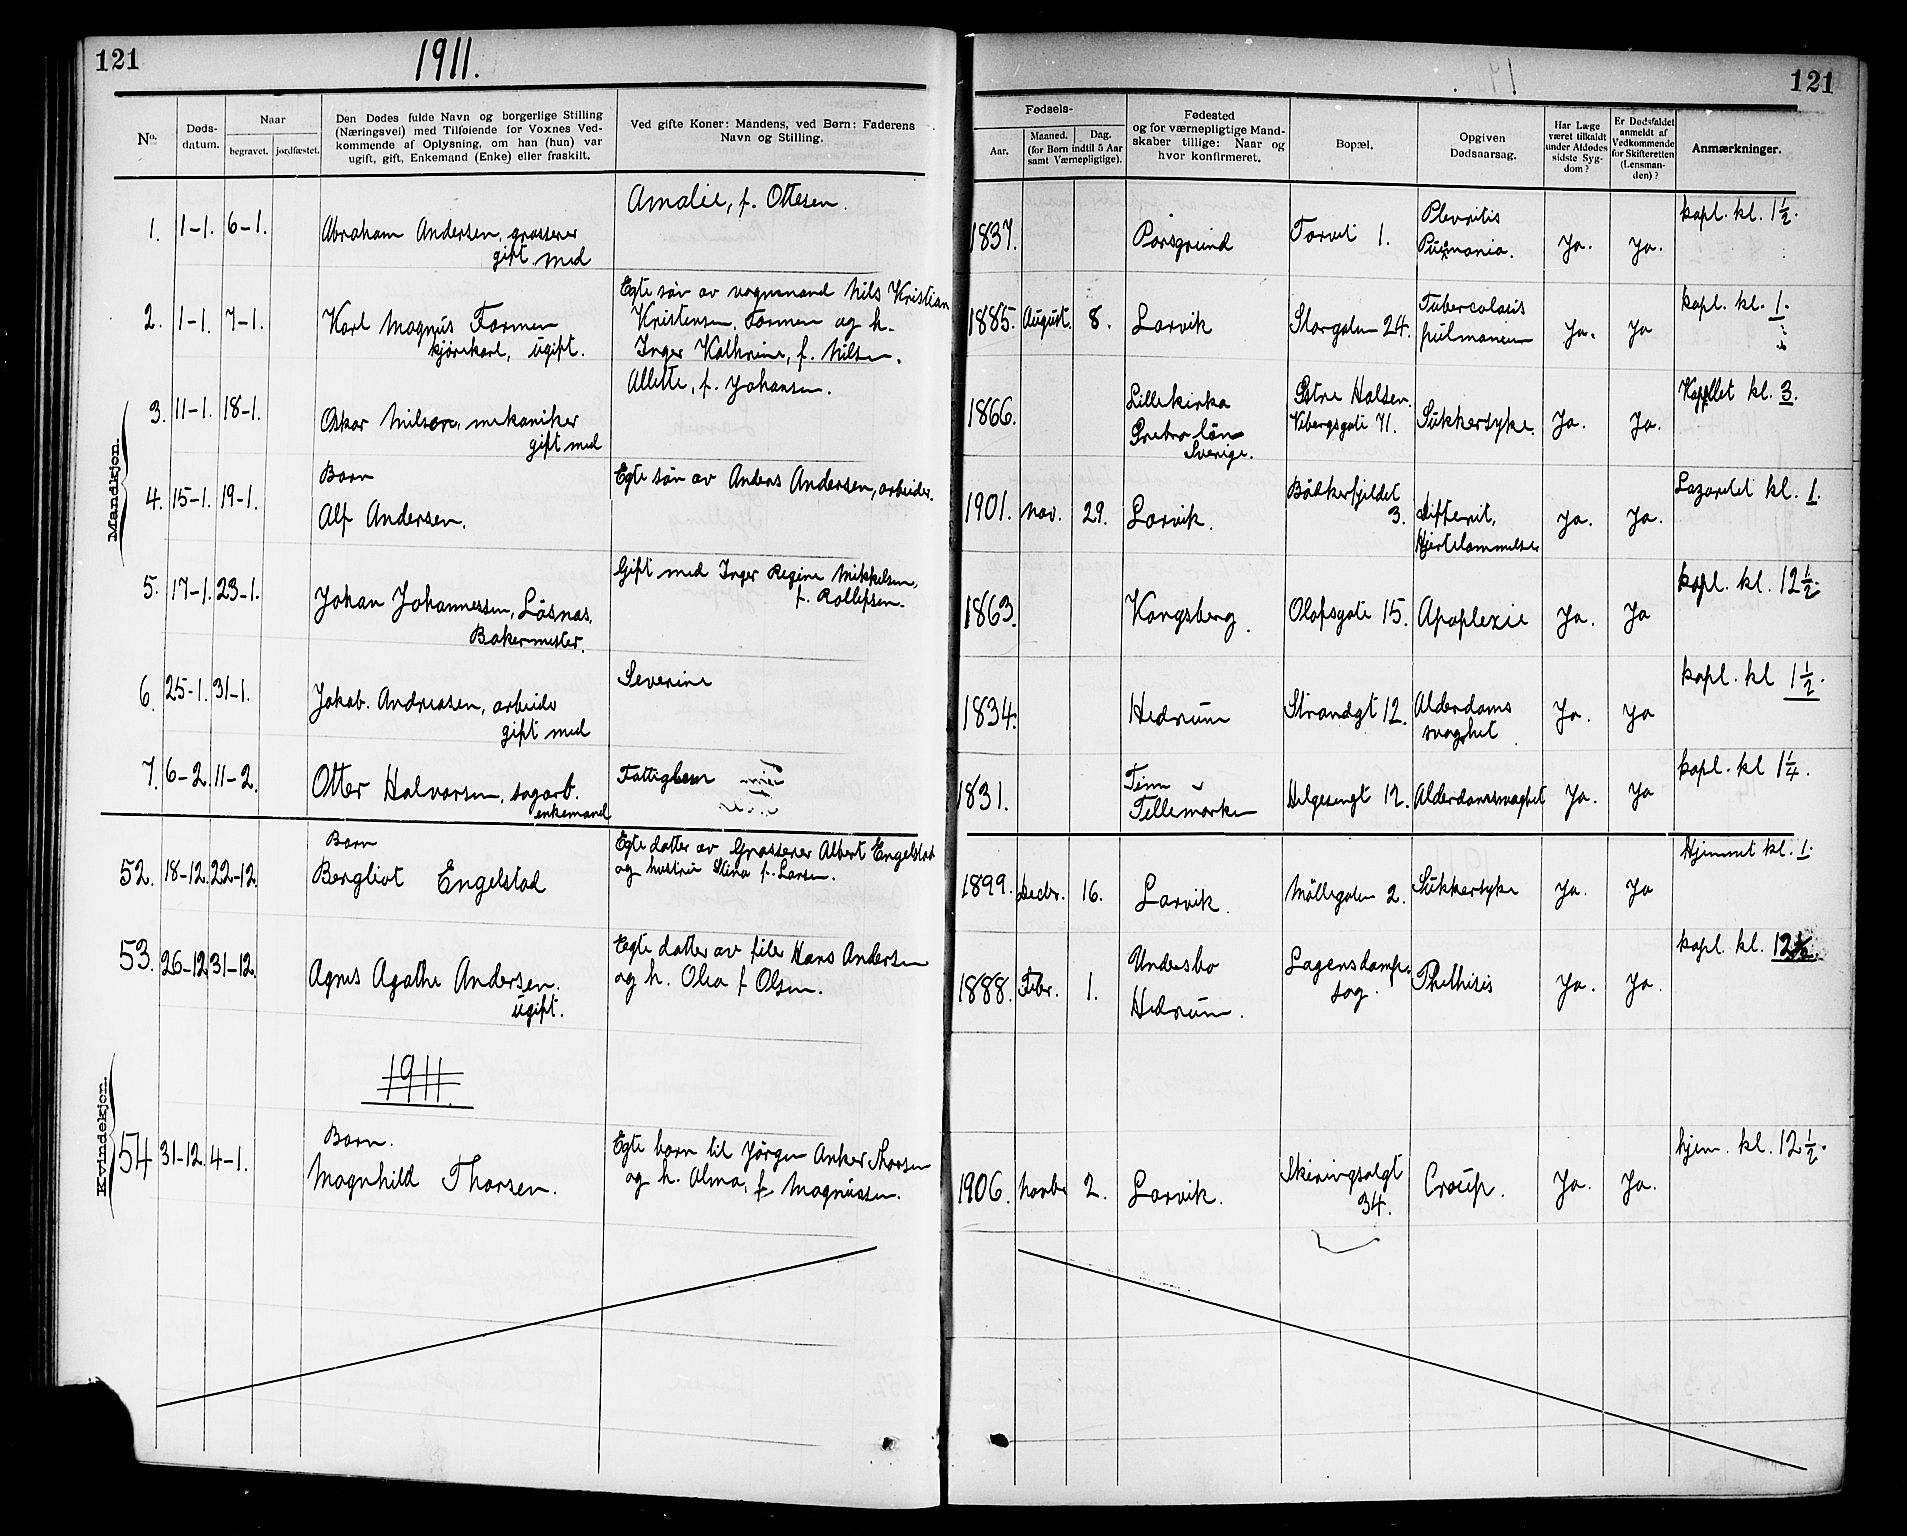 121
1911.
121
No.
Døds-
datum.
Naar
begravet.
jordfæstet.
Den Dødes fulde Navn og borgerlige Stilling
(Næringsvei) med Tilføiende for Voxnes Ved-
kommende af Oplysning, om han (hun) var
ugift, gift, Enkemand (Enke) eller fraskilt.
Ved gifte Koner: Mandens, ved Børn: Faderens
Navn og Stilling.
Fødsels-
Aar.
Maaned.
Dag.
(for Børn indtil 5 Aar
samt Værnepligtige).
Fødested
og for værnepligtige Mand-
skaber tillige: Naar og
hvor konfirmeret.
Bopæl.
Opgiven
Dødsaarsag.
Har Læge
været tilkaldt
under Afdødes
sidste Syg-
dom?
Er Dødsfaldet
anmeldt af
Vedkommende
for Skifteretten
(Lensman-
den)?
Anmærkninger.
Mandkjøn.
1. 1-1. 6-1.
Abraham Andersen, grosserer
gift med
Amalie, f. Ottesen.
1837.
Porsgrund
Torvet 1.
Plevritis
Ja.
Ja.
kapl. kl. 1½.
2. 1-1. 7-1.
Karl Magnus Formen
kjørekarl, ugift.
Egte søn av vognmand Nils Kristian
Kristensen Formen og h.
Inger Kathrine, f. Nilsen.
1885. August. 8.
Larvik
Storgaten 24.
Tuberculosis
pulmonum
Ja.
Ja
kapl. kl. 1.
3. 11-1. 18-1.
Oskar Nilson, mekaniker
gift med
Allette, f. Johansen.
1866.
Lillekirka
Örebro län
Sverige.
Østre Halsen.
Vibergsgate 71.
Sukkersyke.
Ja.
Ja.
Kapellet kl. 3.
4. 15-1. 19-1.
Barn
Alf Andersen.
Egte søn av Anders Andersen, arbeider.
1901. Nov. 29.
Larvik.
Bødkerfjeldet
3.
Difterit,
Hjertelammelse
Ja.
Ja.
Lazaretet kl. 1.
5. 17-1. 23-1.
Johan Johannessen, Låsnas,
Bakermester.
Gift med Inger Regine Mikkelsen,
f. Rollefsen.
1863.
Kongsberg.
Olafsgate 15.
Apoplexie
Ja.
Ja
kapl. kl. 12½.
6. 25-1. 31-1.
Jakob Andreasen, arbeider
gift med
Severine
1834.
Hedrum
Strandgt 12.
Alderdoms
svaghet.
Ja.
Ja
kapl. kl 1½.
7. 6-2. 11-2.
Otter Halvorsen, sagarb.
enkemand
Fattiglem
1831.
Tinn
Tellemarken
Helgesensgt 12.
Alderdomssvaghet
Ja.
Ja
kapl. kl 1¼.
Kvindekjøn.
52. 18-12. 22-12.
Barn
Bergliot Engelstad
Egte datter av Grosserer Albert Engelstad
og hustru Stina f. Larsen.
1899. Decbr. 16.
Larvik.
Møllegaten 2.
Sukkersyke
Ja.
Ja
Hjemmet kl. 1.
53. 26-12 31-12.
Agnes Agathe Andersen.
ugift.
Egte datter av filer Hans Andersen
og h. Olea f Olsen.
1888. Febr. 1.
Undersbo
Hedrum.
Lagensdamp-
sag.
Phethisis
Ja.
Ja.
kapl. kl. 12½.
1911.
54 31-12. 4-1.
Barn.
Magnhild Thorsen.
Egte barn til Jørgen Anker Thorsen
og h. Alma, f. Magnussen.
1906. Novbr 2.
Larvik.
Skiringsalgt
34.
Croup.
Ja.
Ja.
hjem. kl. 12½.